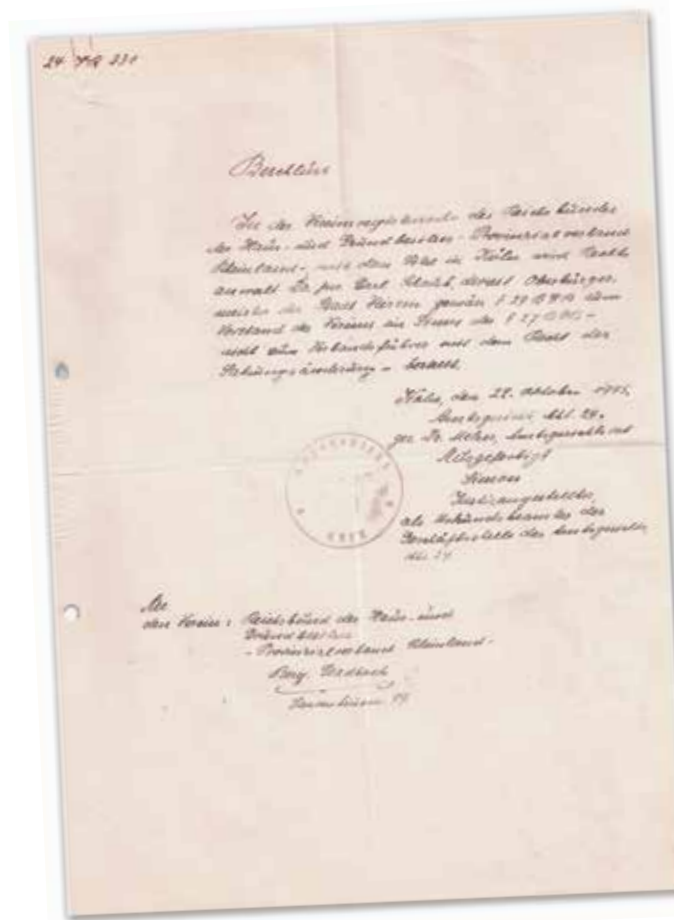 24 VR 231
Beschluss
In der Vereinsregistersache des Reichsbundes
der Haus- und Grundbesitzer - Provinzialverband
Rheinland - mit dem Sitz in Köln wird Rechts
anwalt Dr. jur. derzeit Oberbürger-
meister der Stadt gemäß § 29 BGB dem
Vorstand des Vereins im Sinne des § 27 BGB -
nicht zum Verbandsführer mit dem Recht der
Satzungsänderung -
Köln, den 22. Oktober 1945,
Amtsgericht Abt. 24.
gez. Dr. Amtsgerichtsrat
Ausgefertigt
Simon
Justizangestellter,
als Urkundsbeamter der
Geschäftsstelle des Amtsgerichts
Abt. 24
An
den Verein: Reichsbund der Haus- und
Grundbesitzer
- Provinzialverband Rheinland -
Berg. Gladbach